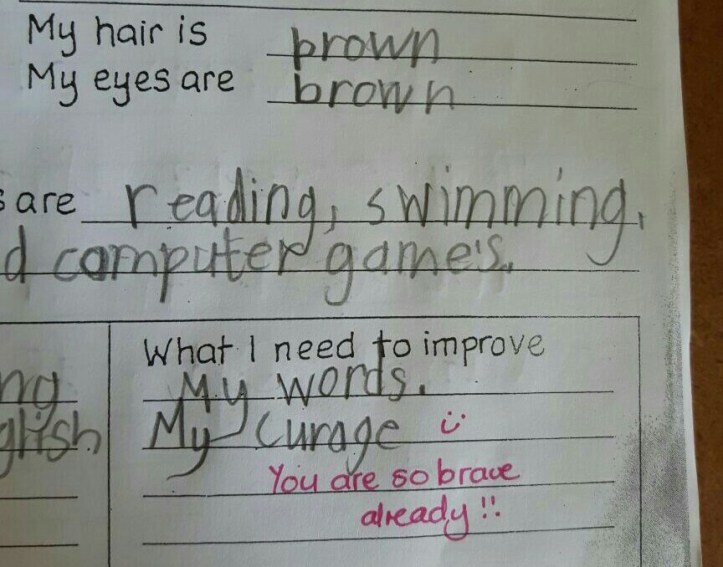 My hair is brown
My eyes are brown
s are reading, swimming,
d computer game's.
What I need to improve
ng My words.
glish My curage
You are so brave
already!!